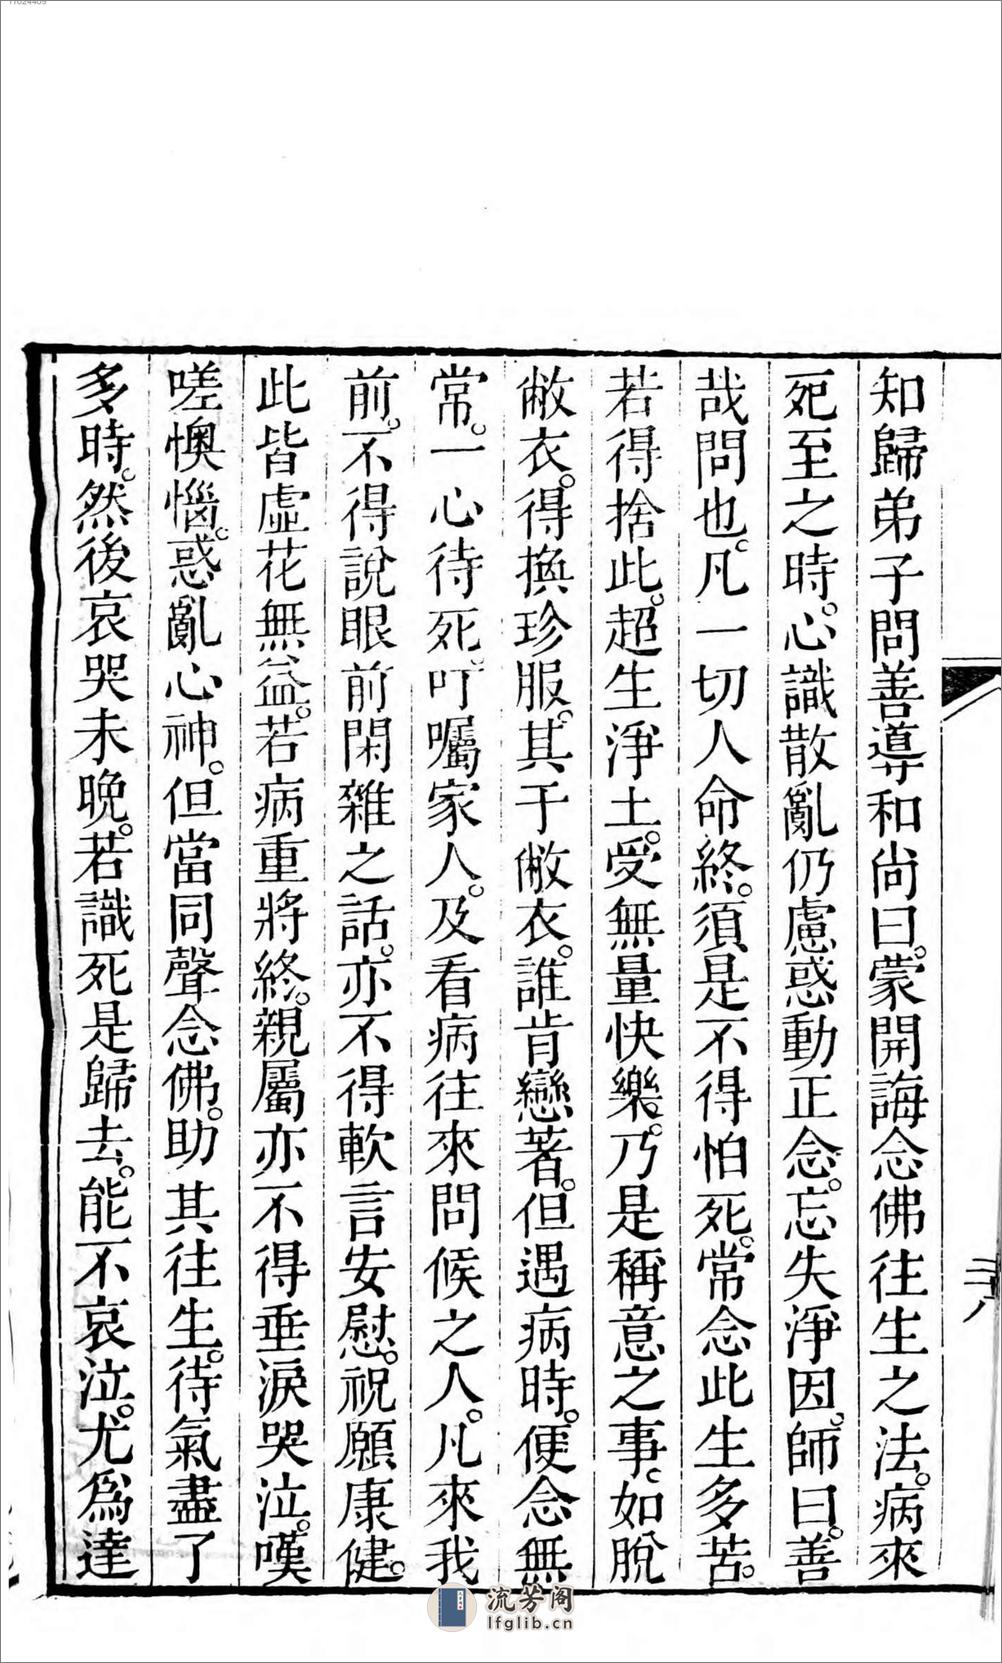 11024409
知歸弟子問善導和尚曰。蒙開誨念佛往生之法。病來
死至之時。心識散亂仍慮惑動正念。忘失淨因。師曰。善
哉問也。凡一切人命終。須是不得怕死。常念此生多苦。
若得捨此。超生淨土。受無量快樂。乃是稱意之事。如脫
敝衣。得換珍服。其于敝衣。誰肯戀著。但遇病時。便念無
常。一心待死。叮囑家人。及看病往來問候之人。凡來我
前。不得說眼前閑雜之話。亦不得軟言安慰。祝願康健。
此皆虛花無益。若病重將終。親屬亦不得垂淚哭泣。嘆
嗟懊惱。惑亂心神。但當同聲念佛。助其往生。待氣盡了
多時。然後哀哭未晚。若識死是歸去。能不哀泣。尤爲達
三十八
流芳阁
lfglib.cn